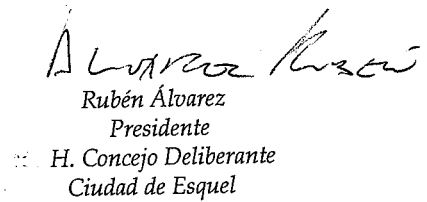 Álvarez Rubén
Rubén Álvarez
Presidente
H. Concejo Deliberante
Ciudad de Esquel